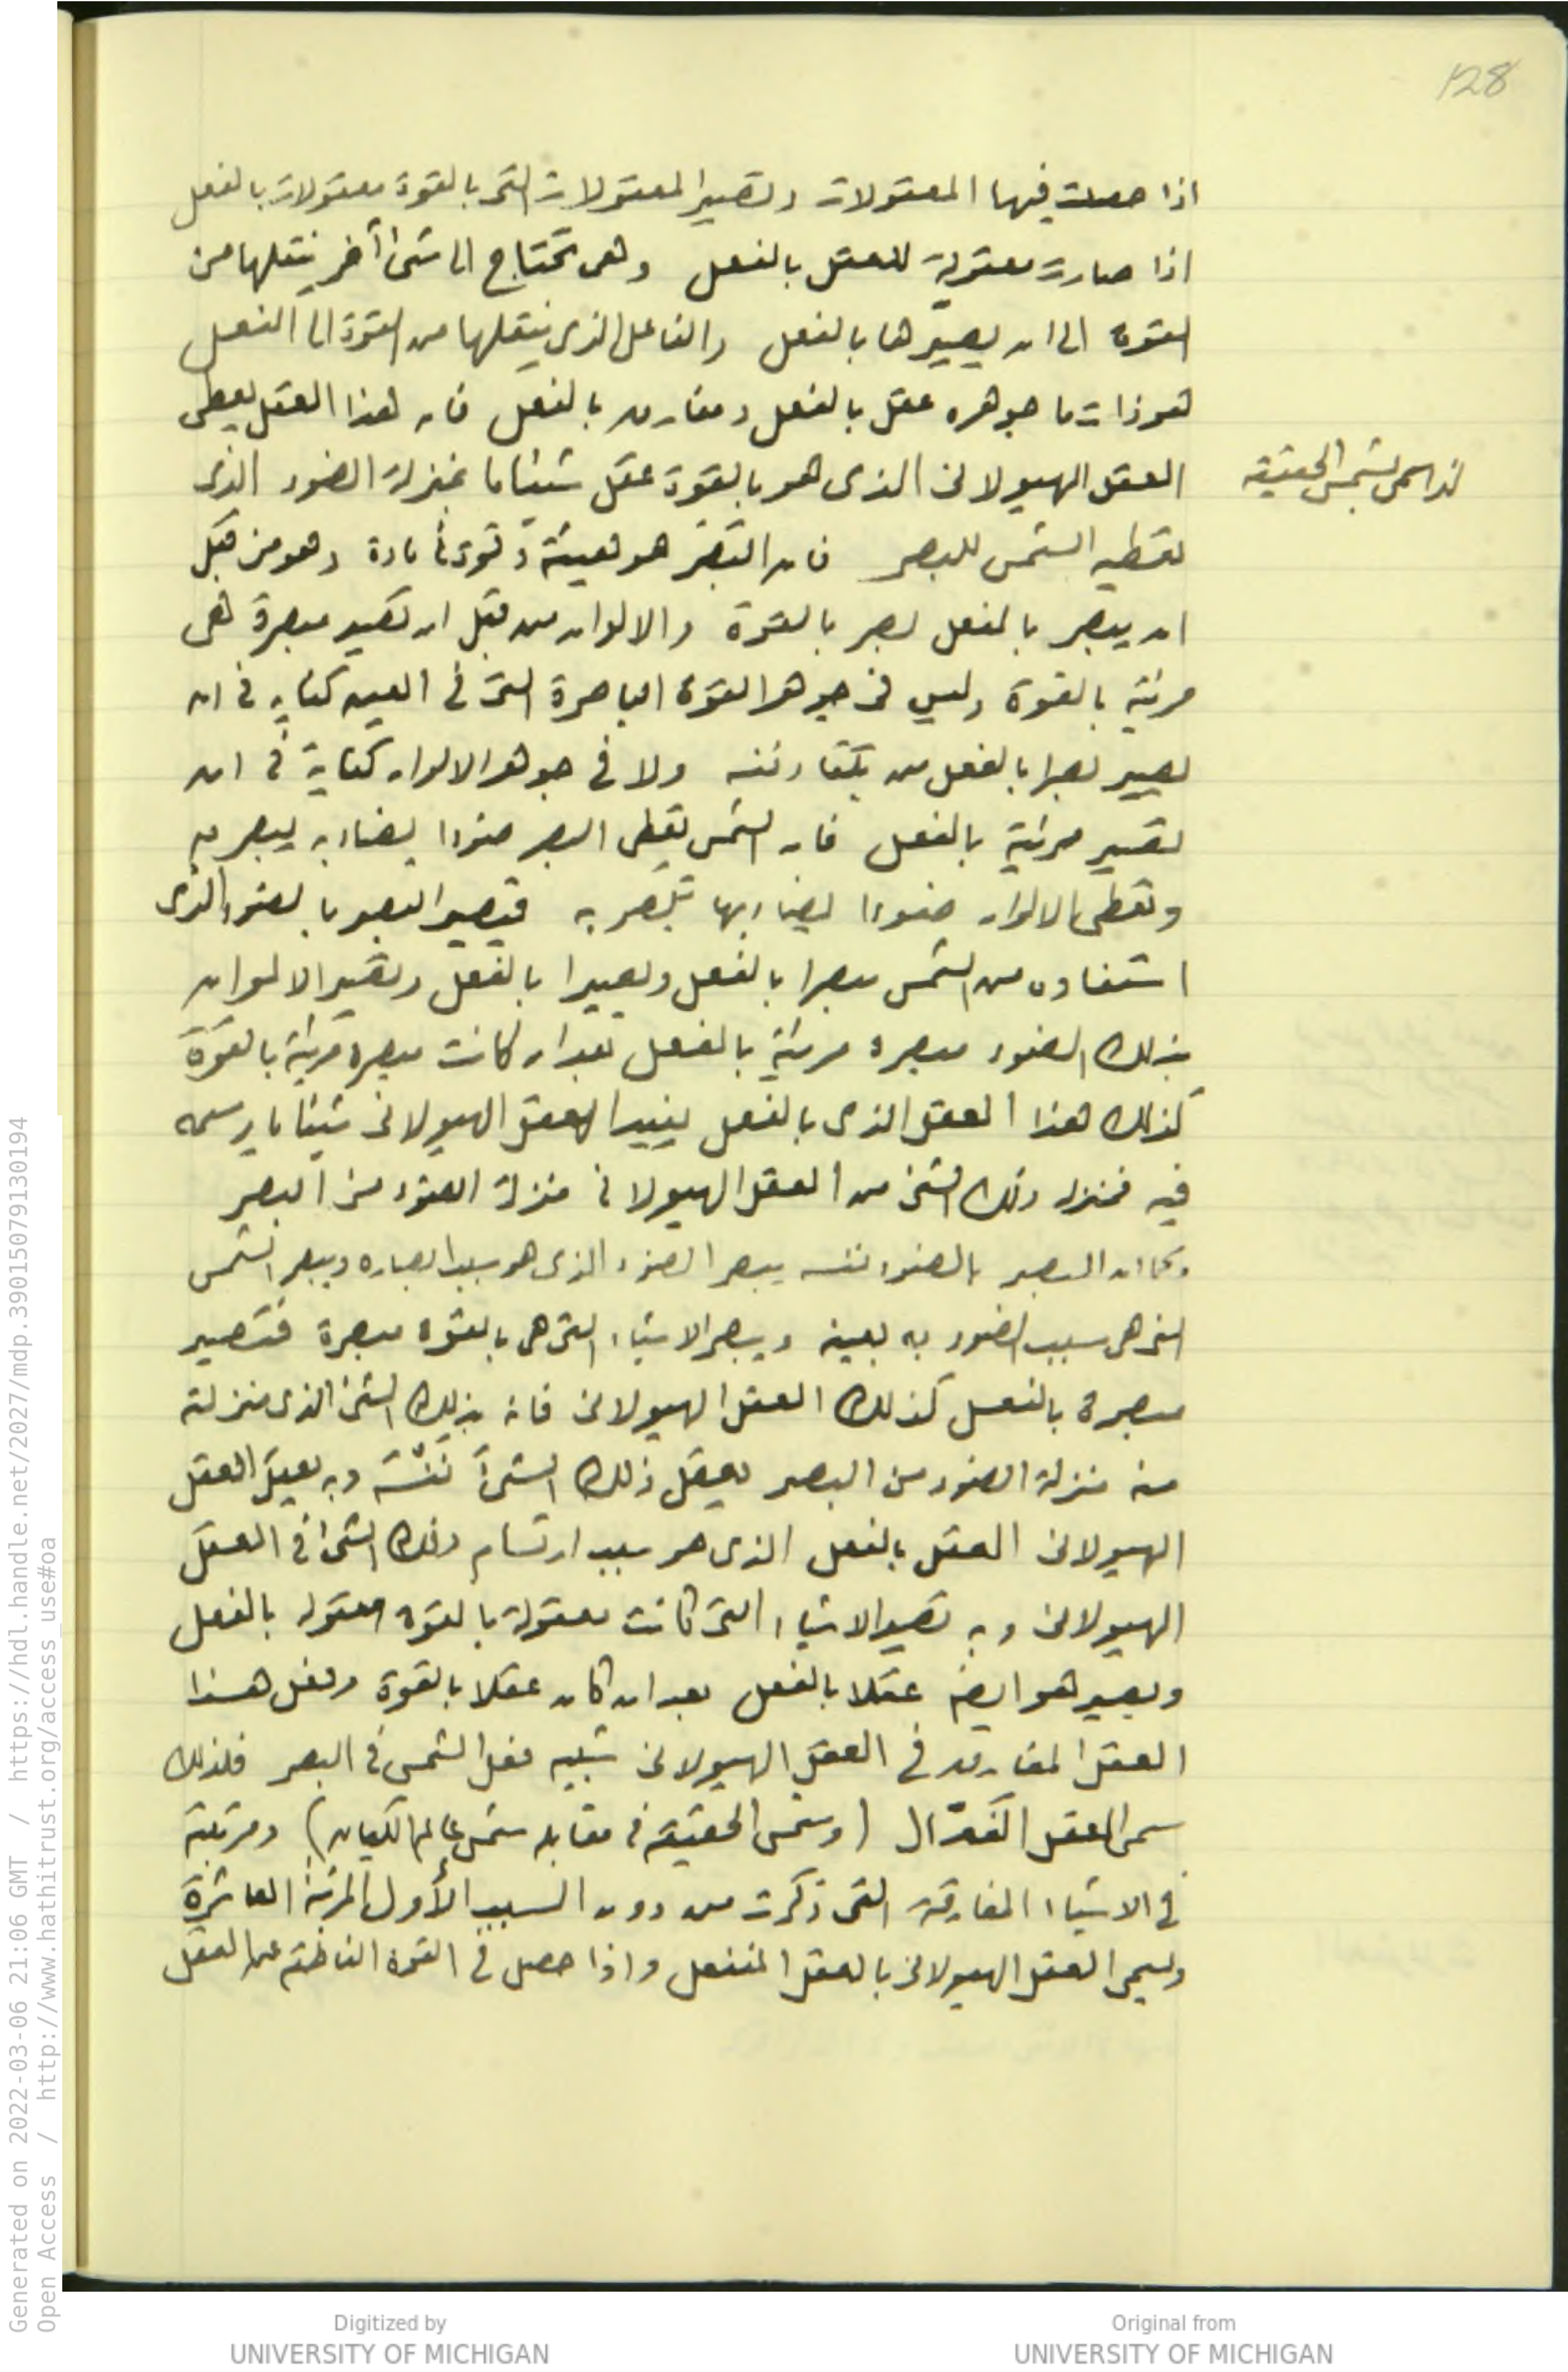 128
اذا حصلت فيها المعقولات وتصير المعقولات التى بالقوة معقولات بالفعل
اذا صارت معقولة للعقل بالفعل وهى تحتاج الى شئ آخر ينقلها من
القوة الى ان يصيرها بالفعل والفاعل الذى ينقلها من القوة الى الفعل
هو ذات ما جوهره عقل بالفعل ومفارق بالفعل فان هذا العقل يعطى
العقل الهيولانى الذى هو بالقوة عقل شيئا ما بمنزلة الضوء الذى
بشمس الحقيقة
تعطيه الشمس للبصر فان البصر هو هيئة وقوة فى مادة وهو من قبل
ان يبصر بالفعل بصر بالقوة والالوان من قبل ان تصير مبصرة هى
مرئية بالقوة وليس فى جوهر القوة الباصرة التى فى العين كفاية فى ان
يصير بصرا بالفعل من تلقاء نفسه ولا فى جوهر الالوان كفاية فى ان
تصير مرئية بالفعل فان الشمس تعطى البصر ضوءا يضاء به يبصر به
وتعطى الالوان ضوءا يضاء بها تبصر به فيصير البصر بالضوء الذى
استفاده من الشمس مبصرا بالفعل وبصيرا بالفعل وتصير الالوان
بذلك الضوء مبصرة مرئية بالفعل بعد ان كانت مبصرة مرئية بالقوة
كذلك هذا العقل الذى بالفعل يفيد العقل الهيولانى شيئا ما يرسمه
فيه فمنزلة ذلك الشئ من العقل الهيولانى منزلة الضوء من البصر
وكما ان البصر بالضوء نفسه يبصر الضوء الذى هو سبب ابصاره ويبصر الشمس
التى هى سبب الضوء به بعينه ويبصر الاشياء التى هى بالقوة مبصرة فتصير
مبصرة بالفعل كذلك العقل الهيولانى فانه بذلك الشئ الذى منزلته
منه منزلة الضوء من البصر يعقل ذلك الشئ نفسه وبه يعقل العقل
الهيولانى العقل بالفعل الذى هو سبب ارتسام ذلك الشئ فى العقل
الهيولانى وبه تصير الاشياء التى كانت معقولة بالقوة معقولة بالفعل
ويصير هو ايضا عقلا بالفعل بعد ان كان عقلا بالقوة وفعل هذا
العقل المفارق فى العقل الهيولانى شبيه فعل الشمس فى البصر فلذلك
سمى العقل الفعّال (وشمس الحقيقة فى مقابلة شمس عالم الكيان) ومرتبته
فى الاشياء المفارقة التى ذكرت من دون السبب الأول المرتبة العاشرة
ويسمى العقل الهيولانى بالعقل المنفعل واذا حصل فى القوة الناطقة عن العقل
Generated on 2022-03-06 21:06 GMT / https://hdl.handle.net/2027/mdp.39015079130194
Open Access / http://www.hathitrust.org/access_use#oa
Digitized by
UNIVERSITY OF MICHIGAN
Original from
UNIVERSITY OF MICHIGAN